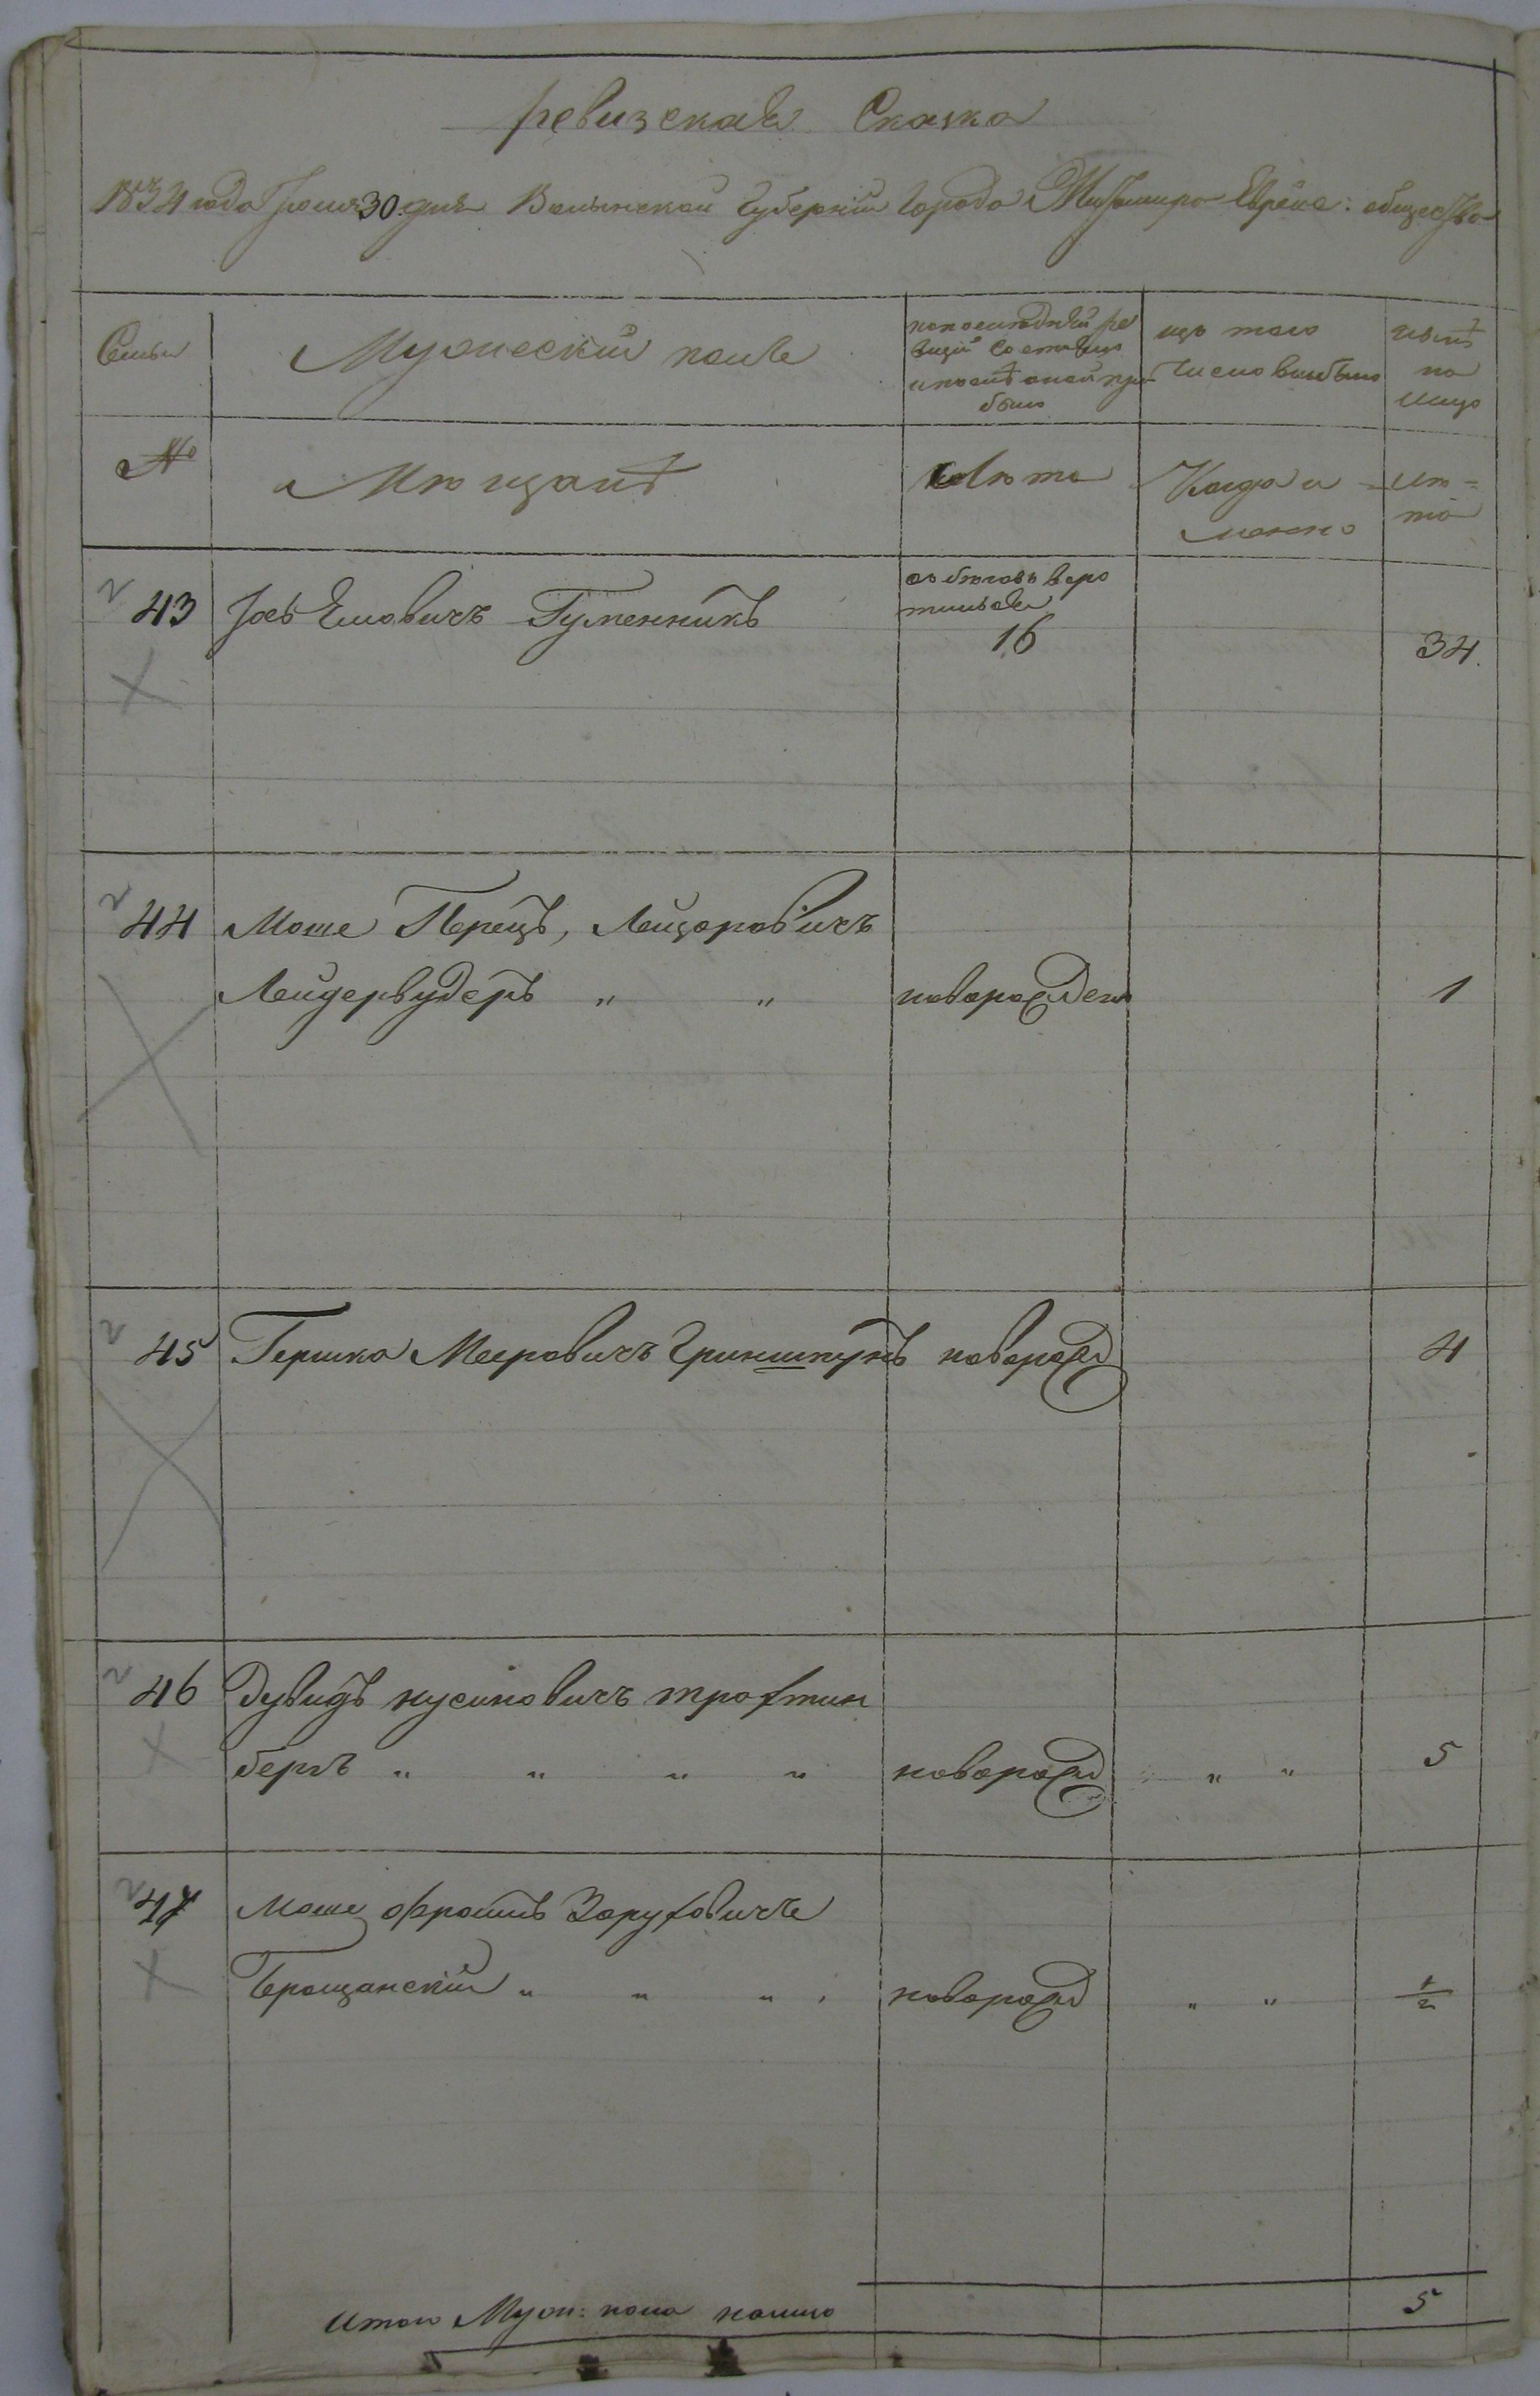 Ревизская Сказка
1834 года Июня 30 дня Волынской Губернiи Города Житомира Еврейс: общества
Семьи
Мужескiй полъ
по последней ре
визiи состояло
и после оной при
было
изъ того
числа выбыло
ныне
на
лицо
№
Мещанѣ
Лета
Когда и
менно
ле=
та
43 Iось Елiовичъ Гуменникъ
изъ беговъ воро
тился
16
34
44 Моше Перецъ, Лейзоровичъ
Лейдервудеръ " " новорожден 1
45 Гершко Мееровичъ Гриншпунъ новорожд 4
46 Дувидъ нусиновичъ трахтин
бергъ " " " " новорожд " " 5
47 Моше Фроимъ Заруховичъ
Брощанскiй " " " новорожд " " 1/2
Итого Муж: пола налицо 5